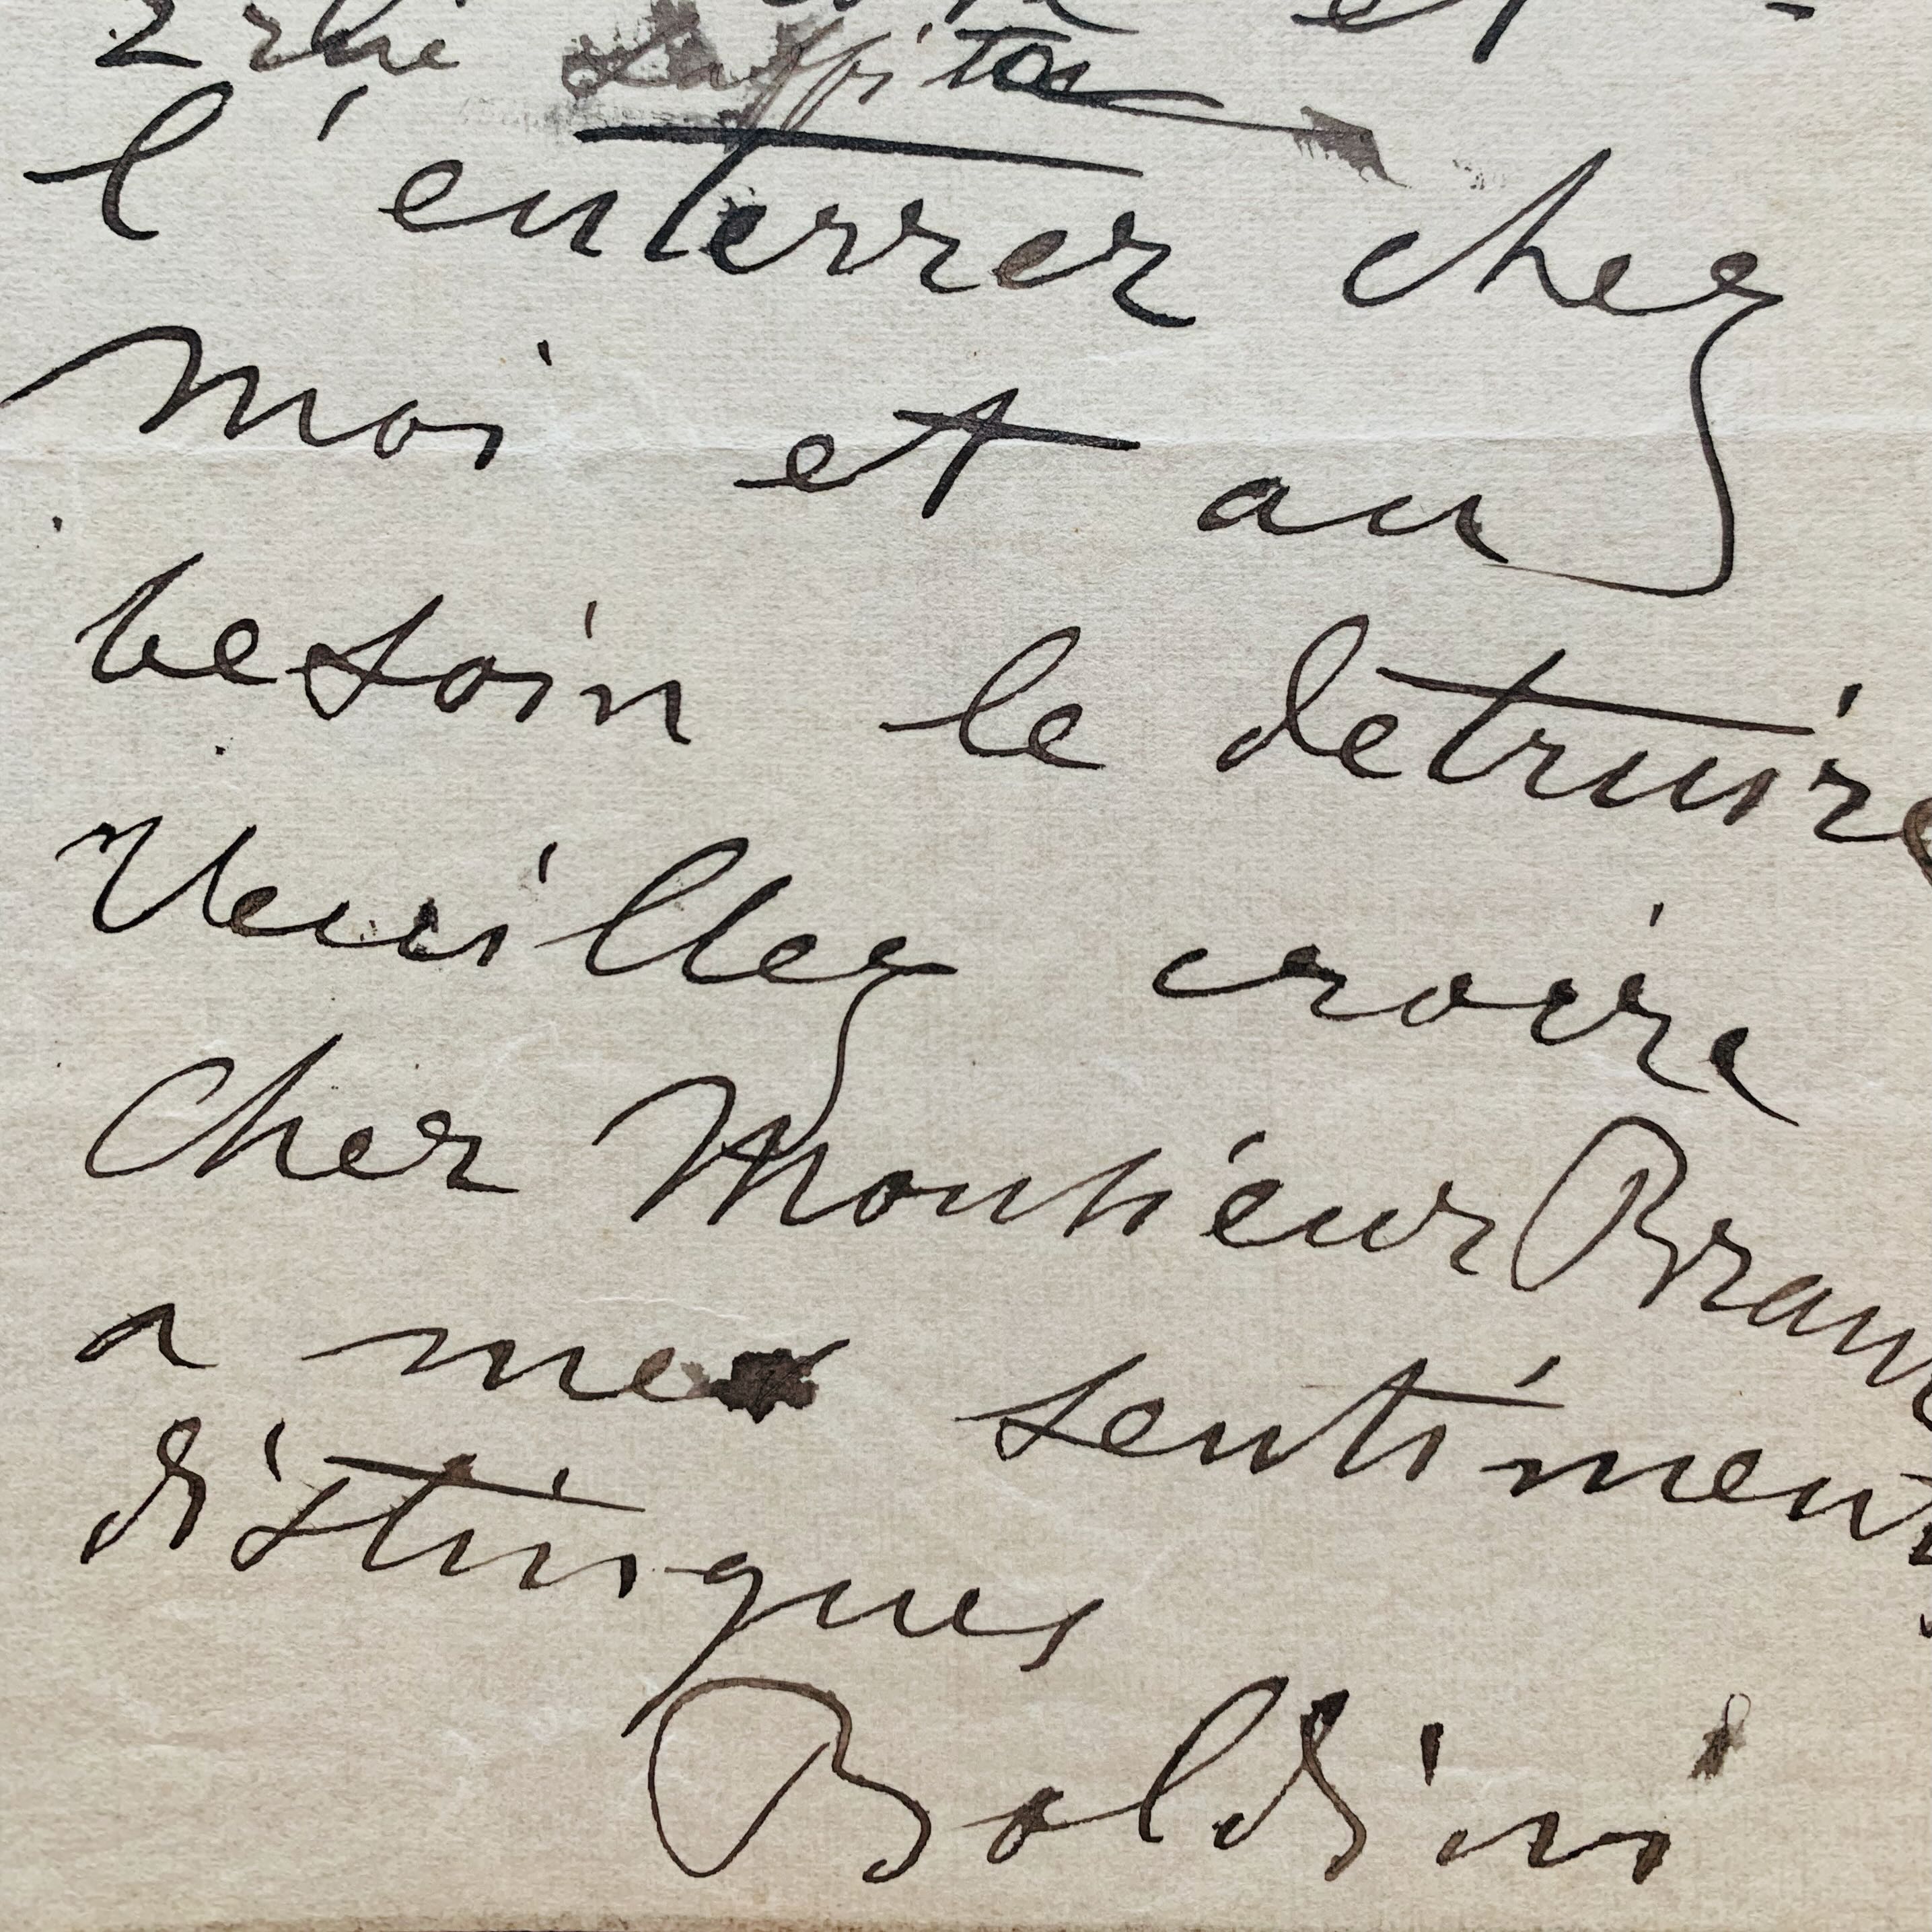 et
l'enterrer chez
moi et au
besoin le detruire
Veuillez croire
Cher Monsieur Braun
a mes sentiments
distingues
Boldini